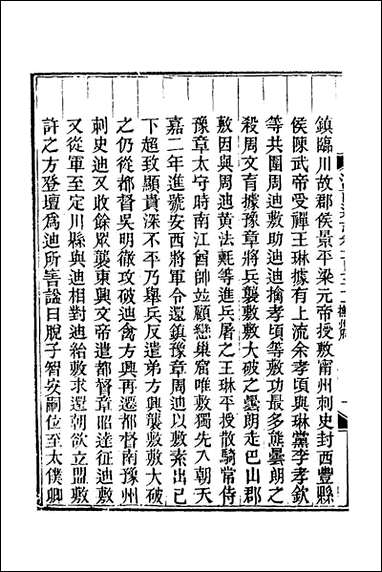 鎮臨川故郡侯景平梁元帝授敷甯州刺史封西豐縣
侯陳武帝受禪王琳據有上流余孝頃與琳黨李孝欽
等共圍周迪敷助迪迪擒孝頃等敷功最多熊曇朗之
殺周文育據豫章將兵襲敷敷大破之曇朗走巴山郡
敷因與周迪黃法𣰰等進兵屠之王琳平授散騎常侍
豫章太守時南江酋帥竝顧戀巢窟唯敷獨先入朝天
嘉二年進號安西將軍令還鎮豫章周迪以敷素出已
下超致顯貴深不平乃舉兵反遣弟方興襲敷敷大破
之仍從都督吳明徹攻破迪禽方興再遷都督南豫州
刺史迪又收餘眾襲東興文帝遣都督章昭達征迪敷
又從軍至定川縣與迪相對迪紿敷求還朝欲立盟敷
許之方登壇爲迪所害謚曰脫子智安嗣位至太僕卿